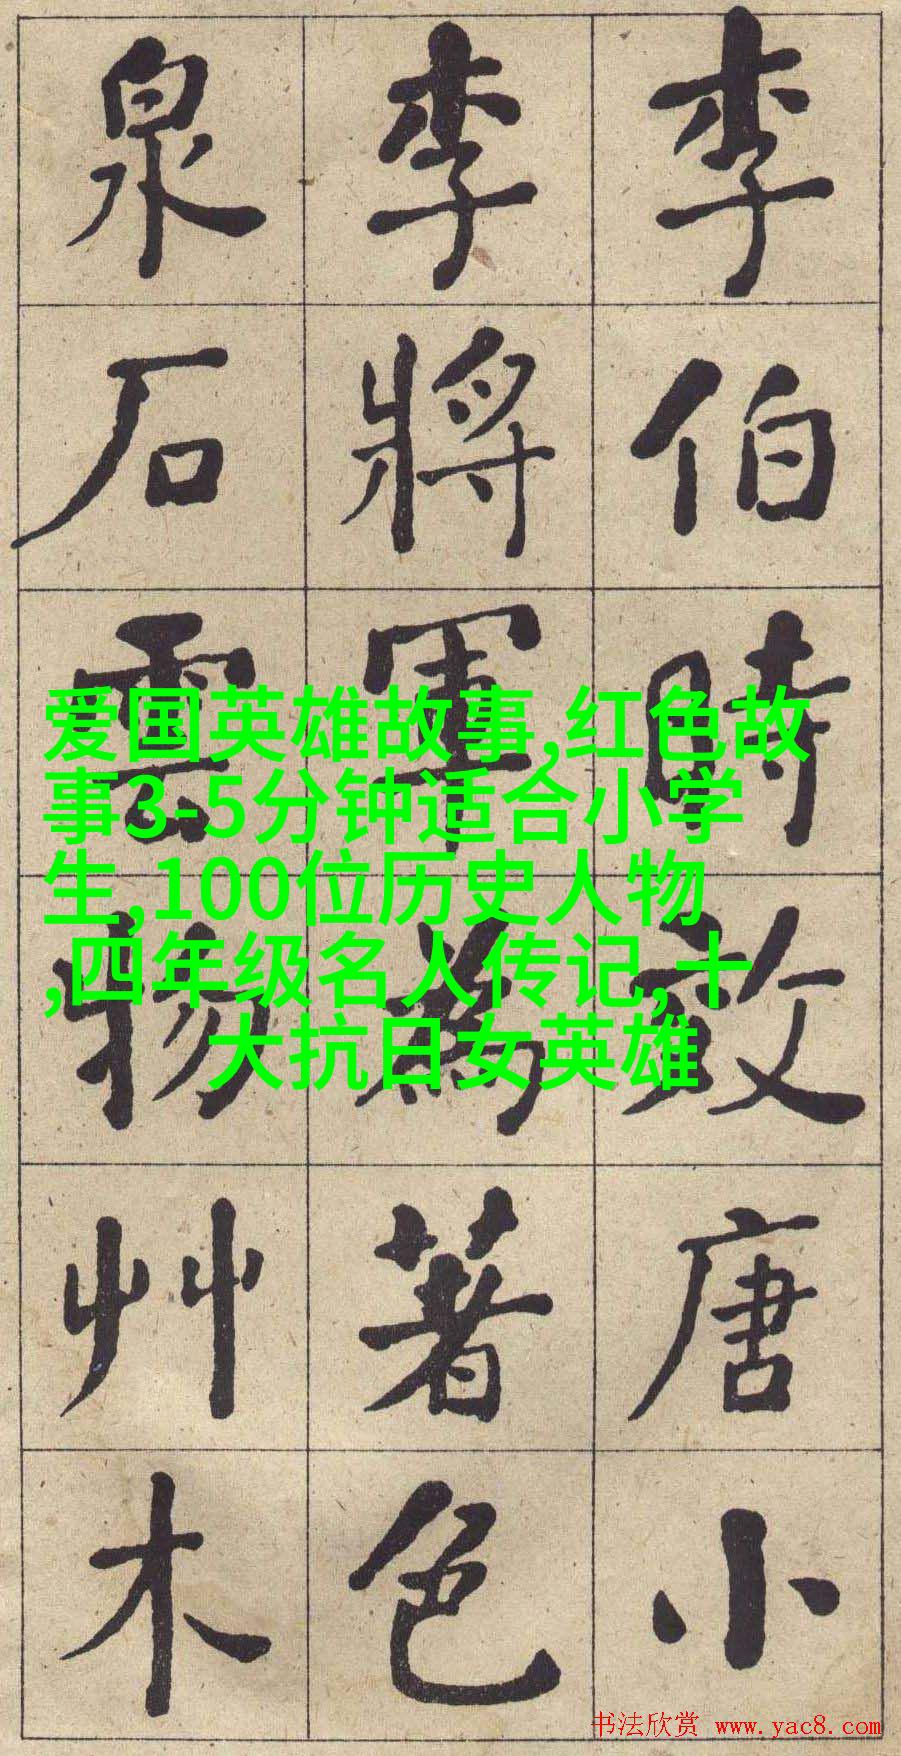 李伯時效唐小
李將軍為著色
泉石雲物艸木
爱国英雄故事,红色故
事3-5分钟适合小学
生,100位历史人物
,四年级名人传记,十
大抗日女英雄
书法欣赏 www.yac8.com